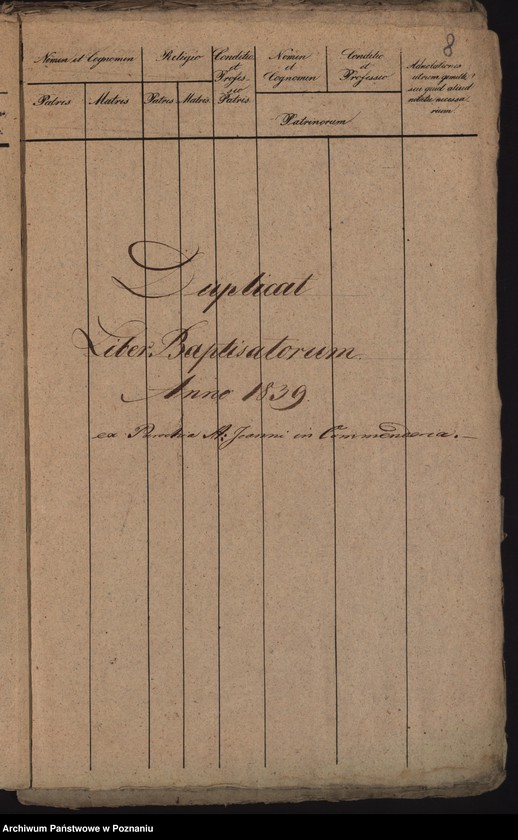 8
Nomen et Cognomen
Religio
Conditio et Profes- sio Patris
Nomen et Cognomen
Conditio et Professio
Patris
Matris
Patris
Matris
Patrinorum
Adnotationes
sui quid aliud
notatu necessa
rium
Duplicat
Liber Baptisatorum.
Anno 1839.
ex Parochia St: Joanni in Commenderia.
Archiwum Państwowe w Poznaniu